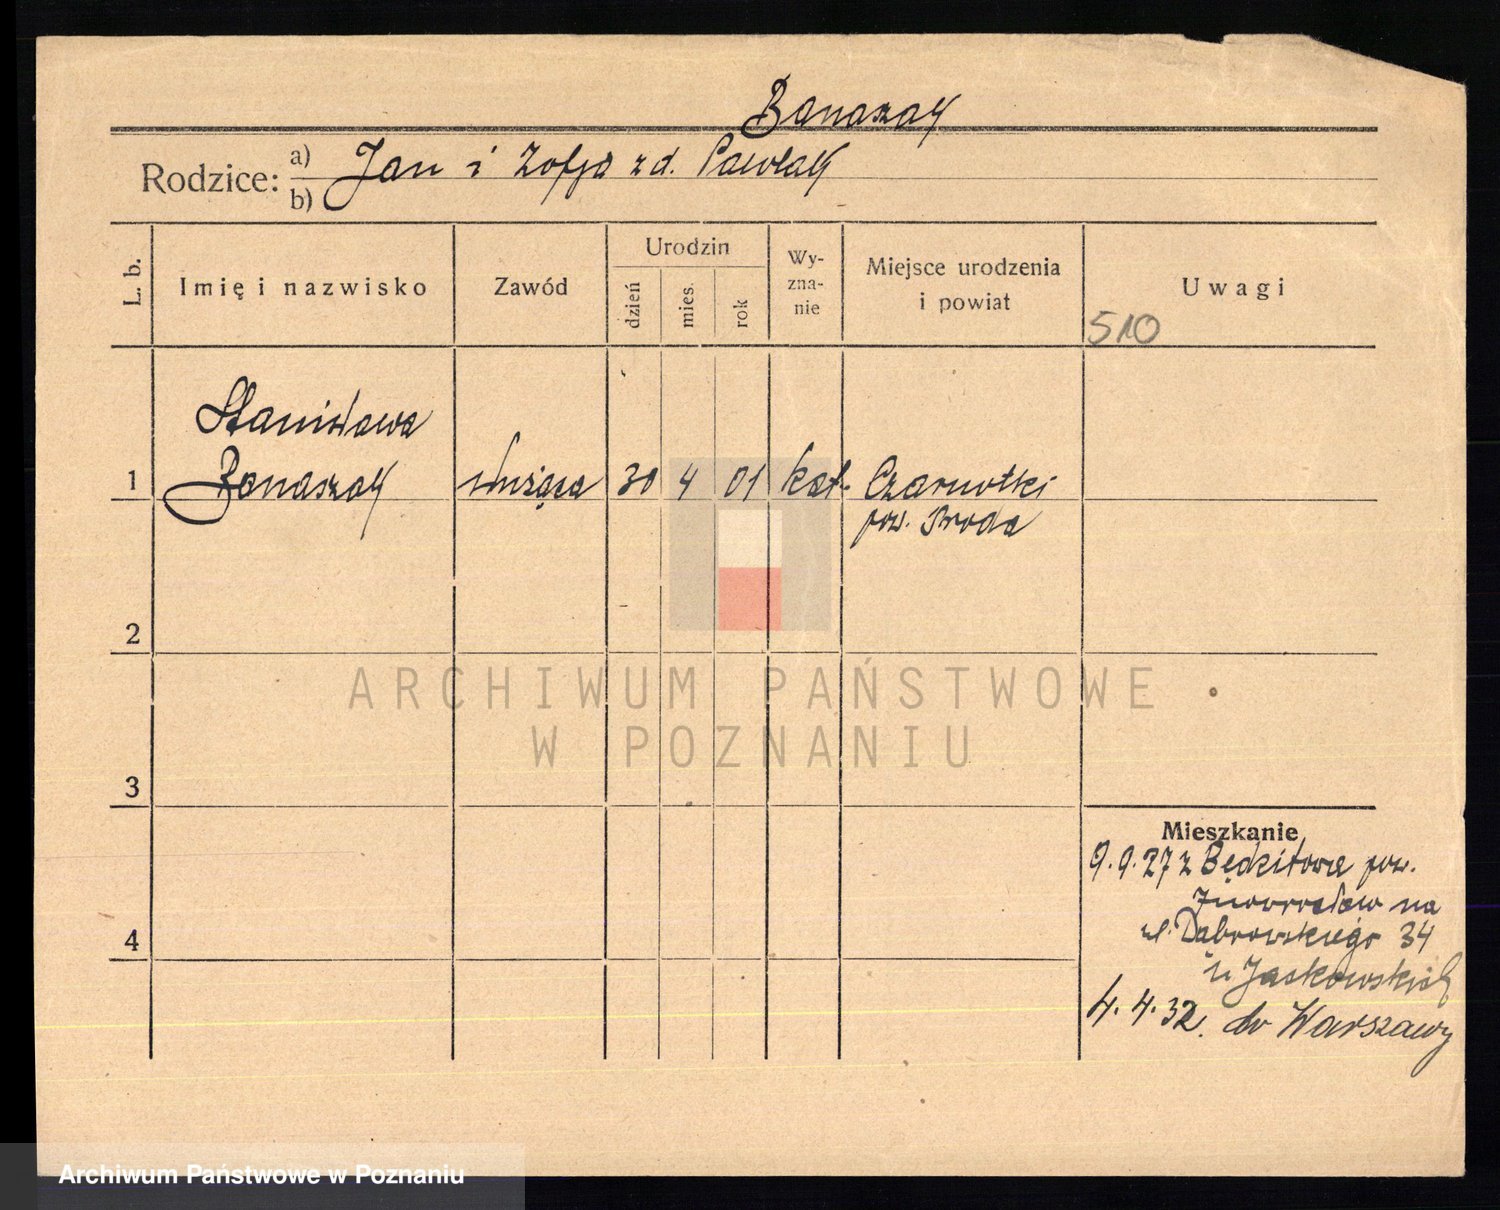 Banaszak
Rodzice: a) Jan i Zofja z d. Pawlak
b)
L. b.
Imię i nazwisko
Zawód
Urodzin
dzień
mies.
rok
Wy-
zna-
nie
Miejsce urodzenia
i powiat
Uwagi
510
Stanisława
1 Banaszak służąca 30 4 01 kat. Czarnotki
pow. Środa
2
3
4
Mieszkanie
9.9.27 z Będzitowa pow.
Inowrocław na
ul. Dąbrowskiego 34
u Jaskowskich
4.4.32. do Warszawy
ARCHIWUM PAŃSTWOWE
W POZNANIU
Archiwum Państwowe w Poznaniu